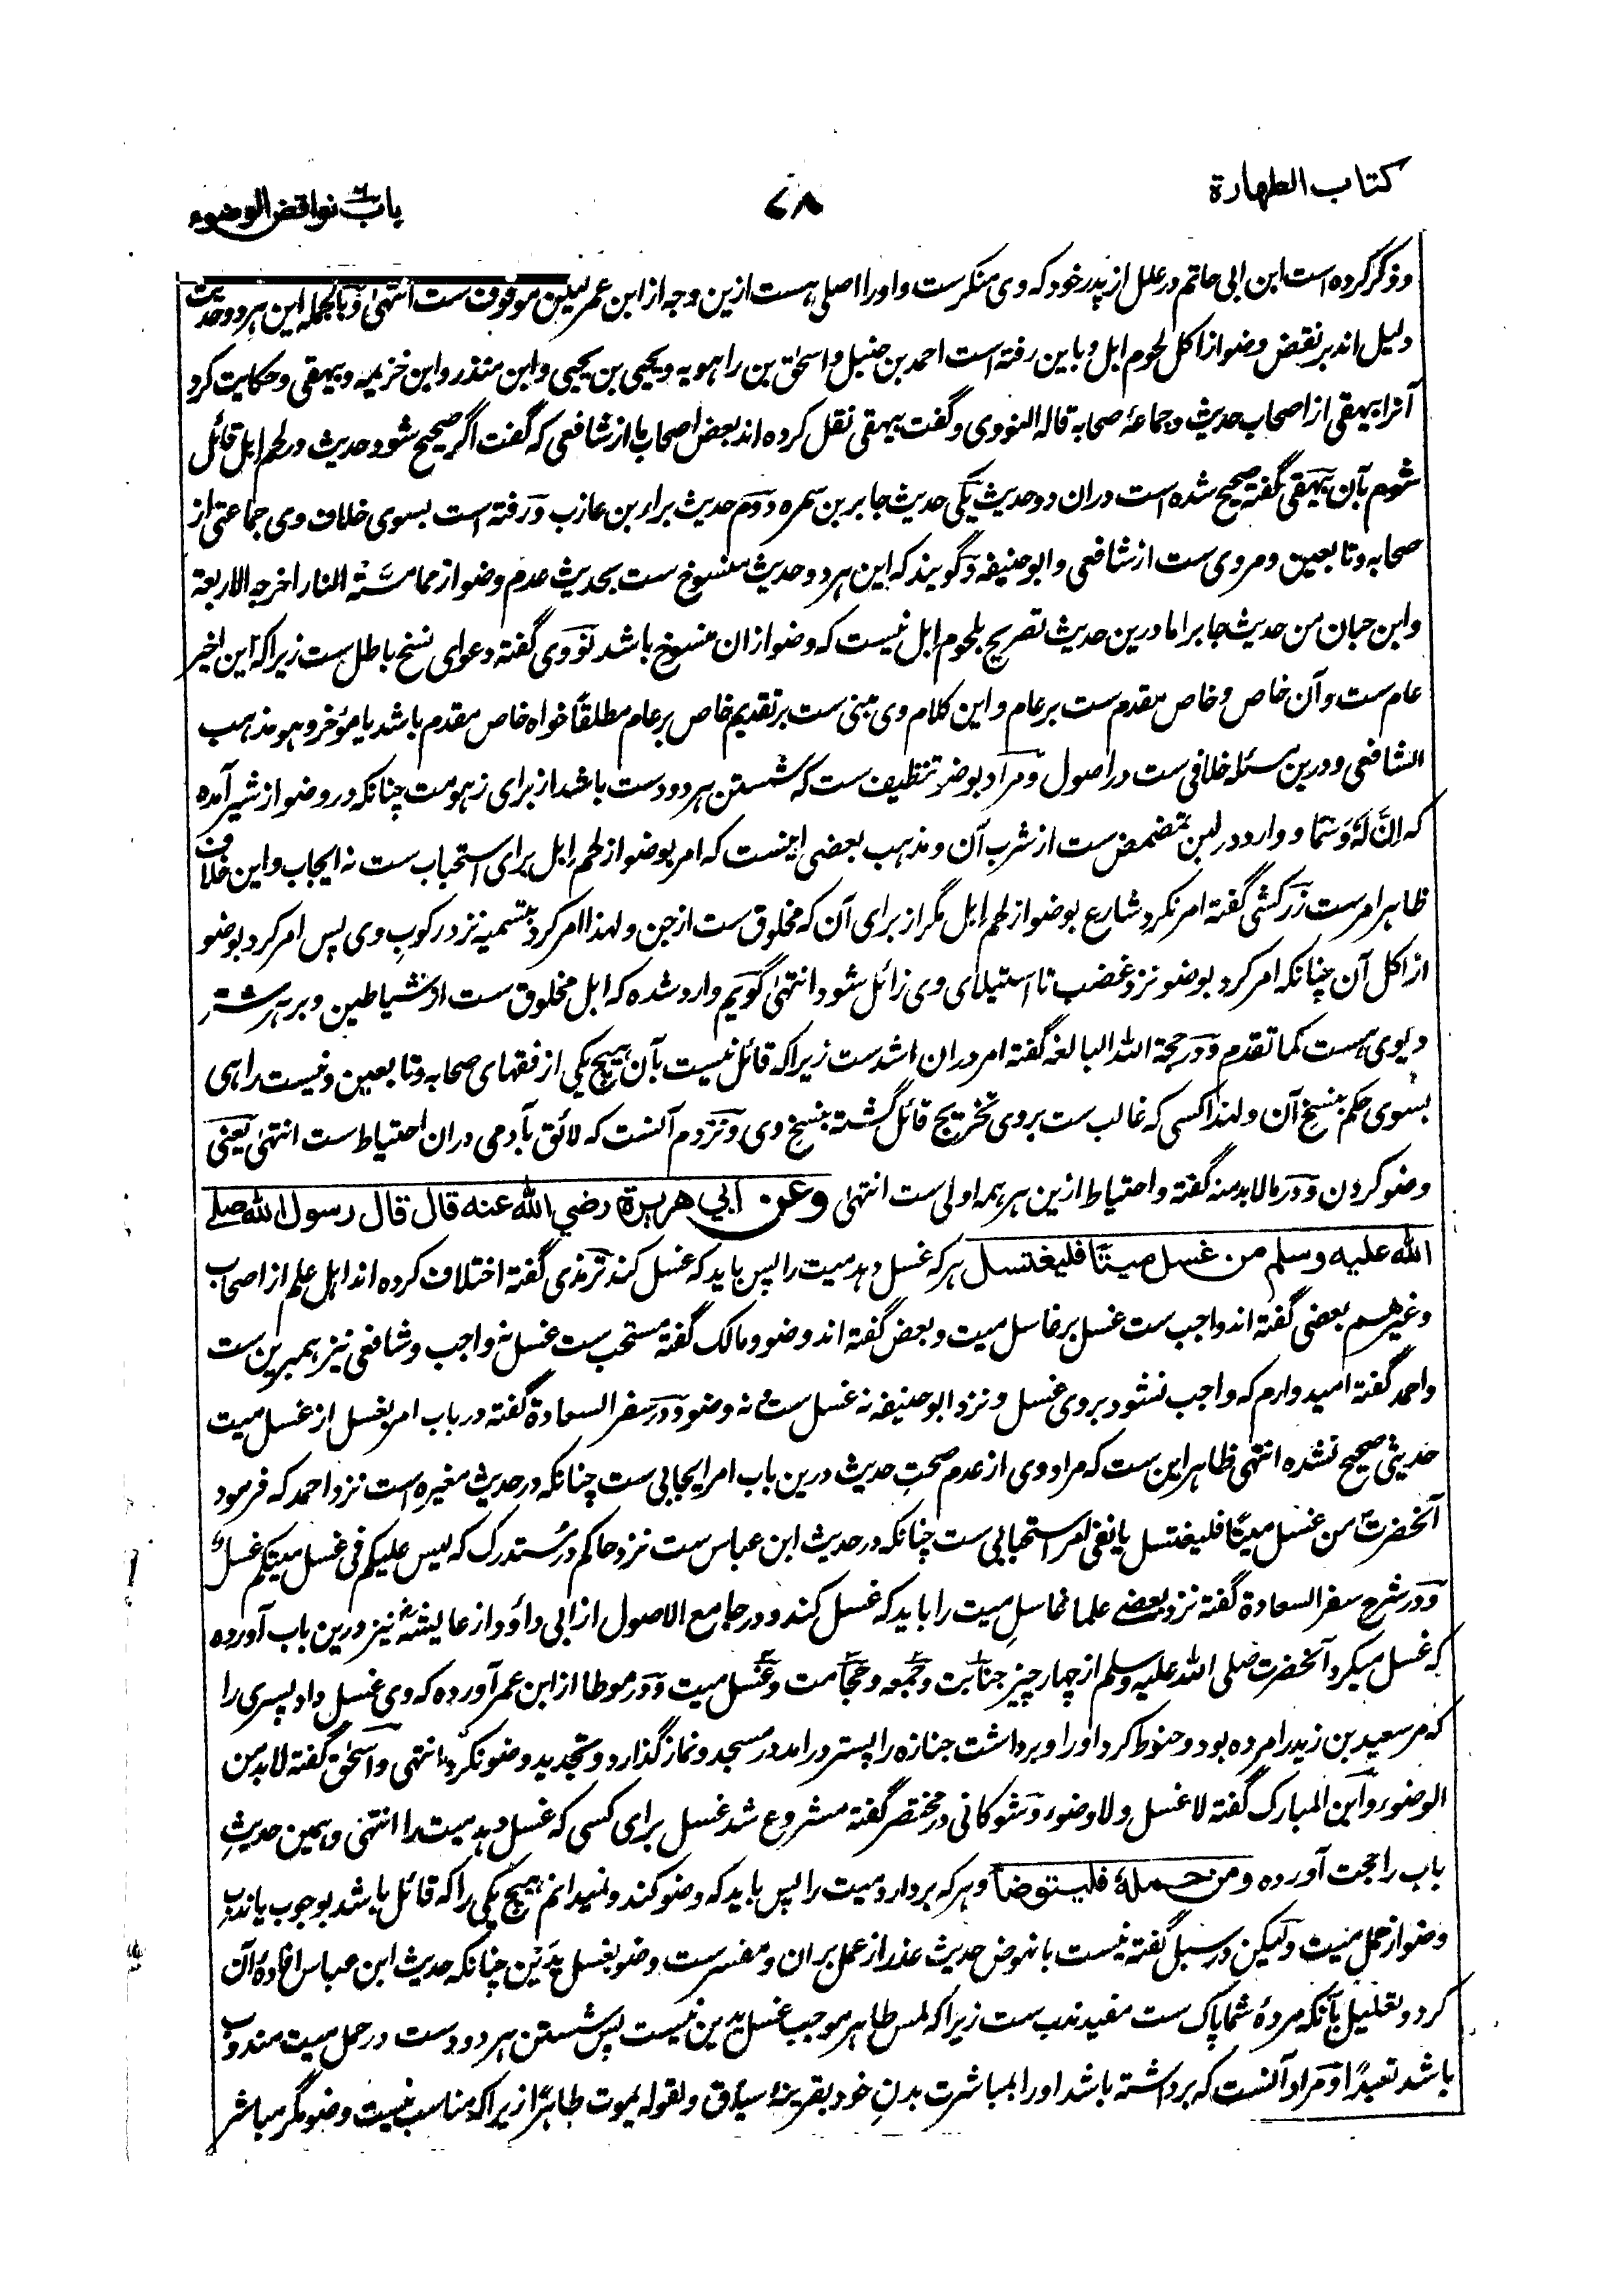 کتاب الطهارة
۷۸
باب نواقض الوضوء
وذکر کرده است ابن ابی حاتم در علل از پدر خود که وی منکرست و او را اصلی هست ازین وجه از ابن عمر لیکن موقوف ست انتهی و بالجمله این هر دو حدیث
دلیل اند بر نقض وضو از اکل لحوم ابل و باین رفته است احمد بن حنبل و اسحٰق بن راهویه و یحیی بن یحیی و ابن منذر و ابن خزیمه و بیهقی و حکایت کرد
آنرا بیهقی از اصحاب حدیث و جماعهٔ صحابه قاله النووی و گفت بیهقی نقل کرده اند بعض اصحاب ما از شافعی که گفت اگر صحیح شود حدیث در لحم ابل قائل
شوم بآن بیهقی گفته صحیح شده است دران دو حدیث یکی حدیث جابر بن سمره دوم حدیث براء بن عازب و رفته است بسوی خلاف وی جماعتی از
صحابه و تابعین و مروی ست از شافعی و ابو حنیفه و گویند که این هر دو حدیث منسوخ ست بحدیث عدم وضو از مما مسّته النار اخرجه الاربعة
وابن حبان من حدیث جابر اما درین حدیث تصریح بلحوم ابل نیست که وضو ازان منسوخ باشد نووی گفته دعوای نسخ باطل ست زیرا که این اخیر
عام ست و آن خاص و خاص مقدم ست بر عام و این کلام وی مبنی ست بر تقدیم خاص بر عام مطلقاً خواه خاص مقدم باشد یا مؤخر و هو مذهب
الشافعی و درین مسئله خلافی ست در اصول و مراد بوضو تنظیف ست که شستن هر دو دست باشد از برای زهومت چنانکه در وضو از شیر آمده
که اِنَّ لَهٗ دَسَمًا و وارد در لبن تمضمض ست از شرب آن و مذهب بعضی اینست که امر بوضو از لحم ابل برای استحباب ست نه ایجاب و این خلاف
ظاهر امر ست زرکشی گفته امر نکرد شارع بوضو از لحم ابل مگر از برای آن که مخلوق ست از جن و لهذا امر کرد بتسمیه نزد رکوب وی پس امر کرد بوضو
از اکل آن چنانکه امر کرد بوضو نزد غضب تا استیلای وی زائل شود انتهی گویم وارد شده که ابل مخلوق ست از شیاطین و بر هر شتر
دیوی هست کما تقدم و در حجة الله البالغه گفته امر دران اشدست زیرا که قائل نیست بآن هیچ یکی از فقهای صحابه و تابعین و نیست راهی
بسوی حکم بنسخ آن و لهذا کسی که غالب ست بروی تخریج قائل گشته بنسخ وی و نزدم آنست که لائق بآدمی دران احتیاط ست انتهی یعنی
وضو کردن و در مالابدمنه گفته و احتیاط ازین هر همه اولی ست انتهی وعن ابی هریرة رضی الله عنه قال قال رسول الله صلے
الله علیه وسلم من غسل میتا فلیغتسل هر که غسل دهد میت را پس باید که غسل کند ترمذی گفته اختلاف کرده اند اهل علم از اصحاب
وغیرهم بعضی گفته اند واجب ست غسل بر غاسل میت و بعض گفته اند وضو و مالک گفته مستحب ست غسل نه واجب و شافعی نیز همبرین ست
واحمد گفته امید دارم که واجب نشود بروی غسل و نزد ابو حنیفه نه غسل ست و نه وضو و در سفر السعادة گفته در باب امر بغسل از غسل میت
حدیثی صحیح نشده انتهی ظاهر این ست که مراد وی از عدم صحت حدیث درین باب امر ایجابی ست چنانکه در حدیث مغیره است نزد احمد که فرمود
آنحضرت من غسل میتًا فلیغتسل یا نفی امر استحبابی ست چنانکه در حدیث ابن عباس ست نزد حاکم در مستدرک که لیس علیکم فی غسل میتکم غسل
و در شرح سفر السعادة گفته نزد بعضے علما غاسل میت را باید که غسل کند و در جامع الاصول از ابی داؤد از عایشه نیز درین باب آورده
که غسل میکرد آنحضرت صلی الله علیه وسلم از چهار چیز جنابت و جمعه و حجامت و غسل میت و در موطا از ابن عمر آورده که وی غسل داد پسری را
که مر سعید بن زید را مرده بود و حنوط کرد او را و برداشت جنازه را پستر درامد در مسجد و نماز گذارد و تجدید وضو نکرد انتهی و اسحٰق گفته لابد من
الوضوء و ابن المبارک گفته لا غسل ولا وضوء و شوکانی در مختصر گفته مشروع شد غسل برای کسی که غسل دهد میت را انتهی و همین حدیث
باب را حجت آورده ومن حمله فلیتوضأ و هر که بردارد میت را پس باید که وضو کند و نمیدانم هیچ یکی را که قائل باشد بوجوب یا ندب
وضو از حمل میت و لیکن در سبل گفته نیست با نهوض حدیث عذر از عمل بران و مفسرست وضو بغسل یدین چنانکه حدیث ابن عباس افادهٔ آن
کرد و تعلیل بآنکه مردهٔ شما پاک ست مفید ندب ست زیرا که لمس طاهر موجب غسل یدین نیست پس شستن هر دو دست در حمل میت مندوب
باشد تعبدًا و مراد آنست که برداشته باشد او را بمباشرت بدن خود بقرینهٔ سیاق و لقوله یموت طاهرًا زیرا که مناسب نیست وضو مگر مباشر